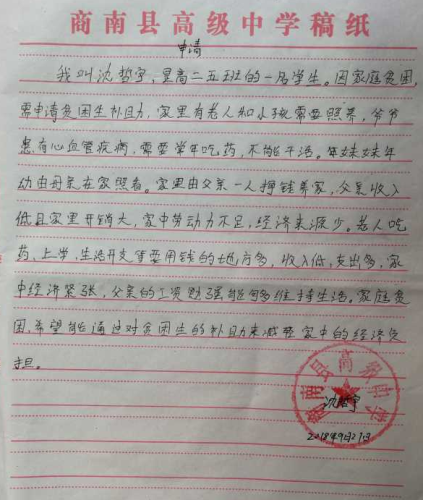 商南县高级中学稿纸
申请
我叫沈哲宇,是高二五班的一名学生。因家庭贫困,
需申请贫困生补助,家里有老人和小孩需要照养,爷爷
患有心血管疾病,需要常年吃药,不能干活。年妹妹年
幼由母亲在家照看。家里由父亲一人挣钱养家,父亲收入
低且家里开销大,家中劳动力不足,经济来源少。老人吃
药,上学,生活开支等要用钱的地方多,收入低,支出多,家
中经济紧张,父亲的工资勉强能够维持生活。家庭贫
困,希望能通过对贫困生的补助来减轻家中的经济负
担。
商南县高级中学
沈哲宇
2018年9月27日